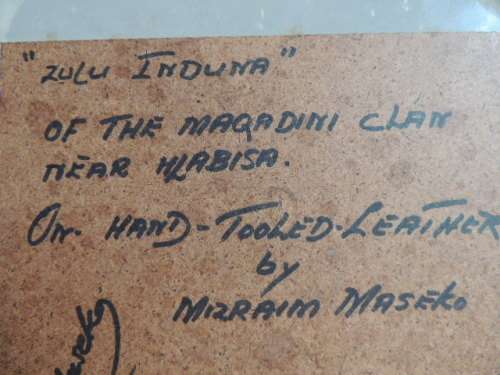 "ZULU INDUNA"
OF THE MAQADINI CLAN
NEAR HLABISA.
ON HAND-TOOLED-LEATHER
by
MIZRAIM MASEKO